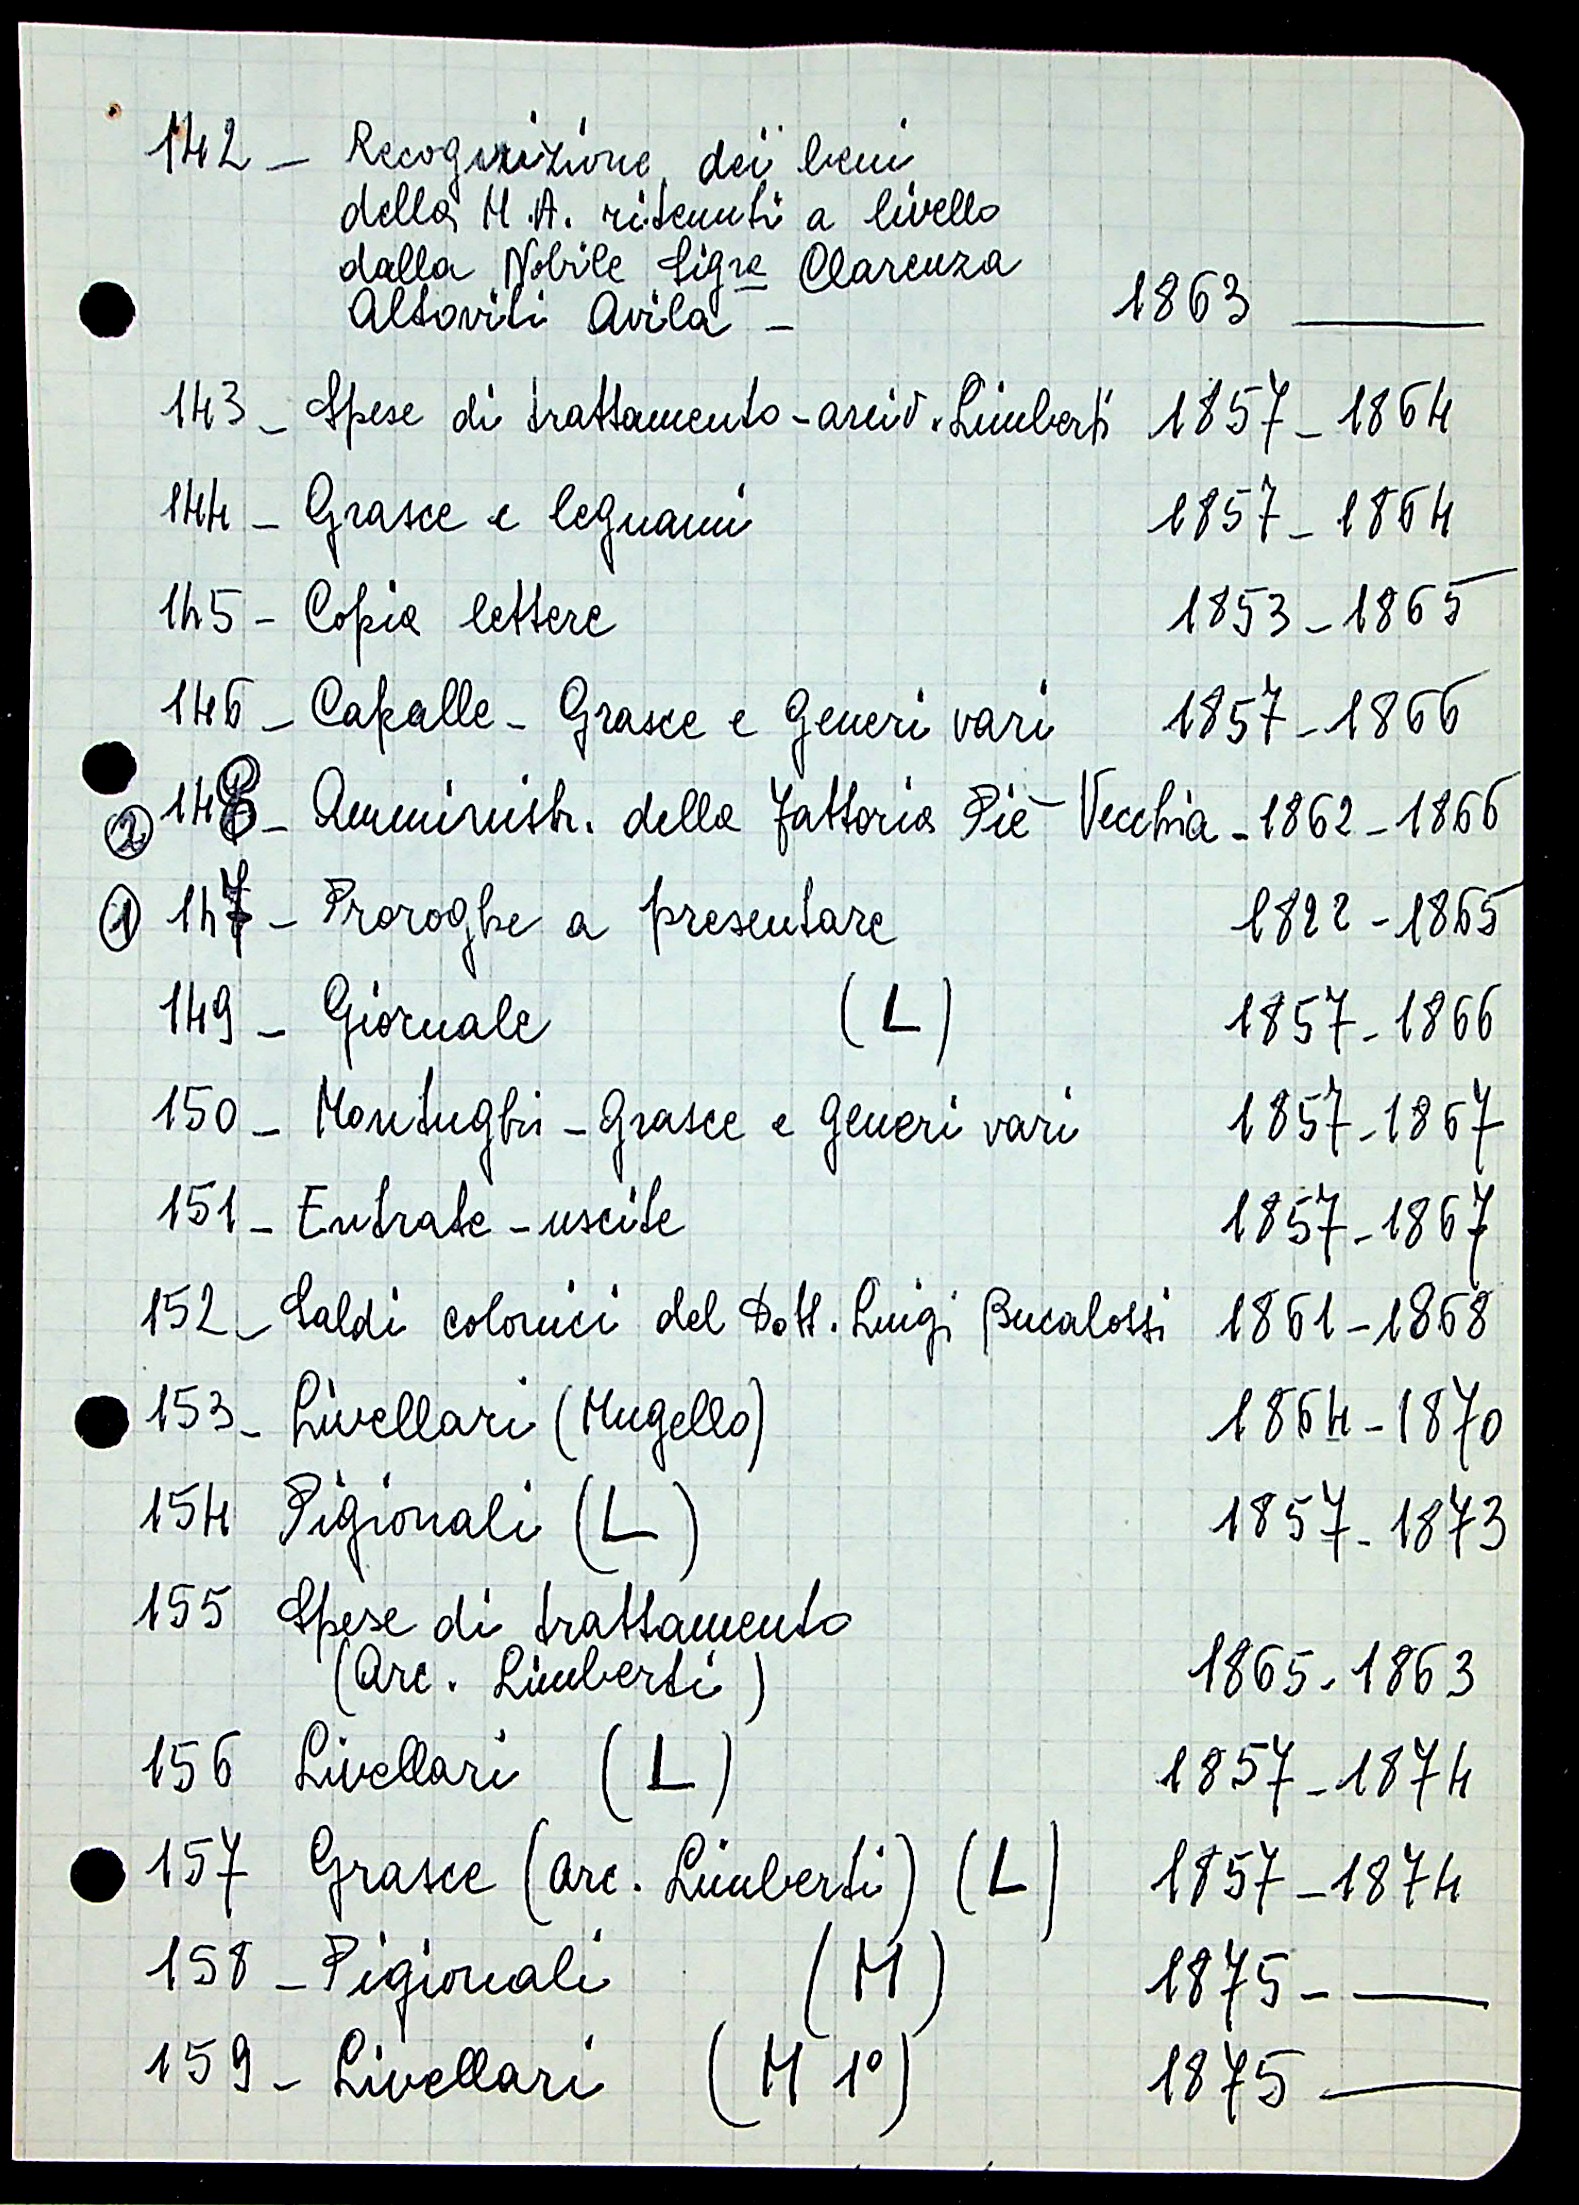 142 - Recognizione dei beni
della M.A. ritenuti a livello
dalla Nobile Sigra Clarenza
Altoviti Avila - 1863 ___
143 - Spese di trattamento - arciv. Limberti 1857 - 1864
144 - Grasce e legnami 1857 - 1864
145 - Copia lettere 1853 - 1865
146 - Capalle - Grasce e Generi vari 1857 - 1866
② 148 - Amministr. della Fattoria Piè Vecchia - 1862 - 1866
① 147 - Proroghe a presentare 1822 - 1865
149 - Giornale (L) 1857 - 1866
150 - Montughi - Grasce e Generi vari 1857 - 1867
151 - Entrate - uscite 1857 - 1867
152 - Saldi colonici del Dott. Luigi Bucalossi 1861 - 1868
153 - Livellari (Mugello) 1864 - 1870
154 Pigionali (L) 1857 - 1873
155 Spese di trattamento
(Arc. Limberti) 1865 - 1863
156 Livellari (L) 1857 - 1874
157 Grasce (Arc. Limberti) (L) 1857 - 1874
158 - Pigionali (M) 1875 - ___
159 - Livellari (M 1°) 1875 ___